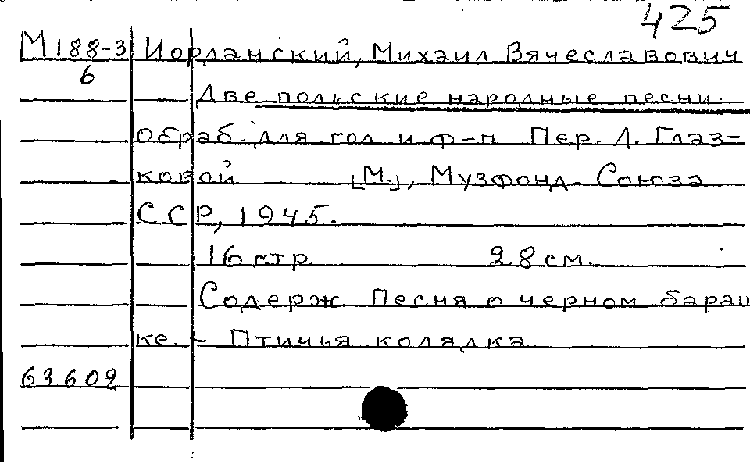 425
М188-3 Иорданский, Михаил Вячеславович
6
Две польские народные песни.
Обраб. для гол. и ф-п. Пер. Л. Глаз-
ковой [М.], Музфонд Союза
ССР, 1945.
16 стр. 28 см.
Содерж. Песня о черном бараш
ке. - Птичья колядка
63602